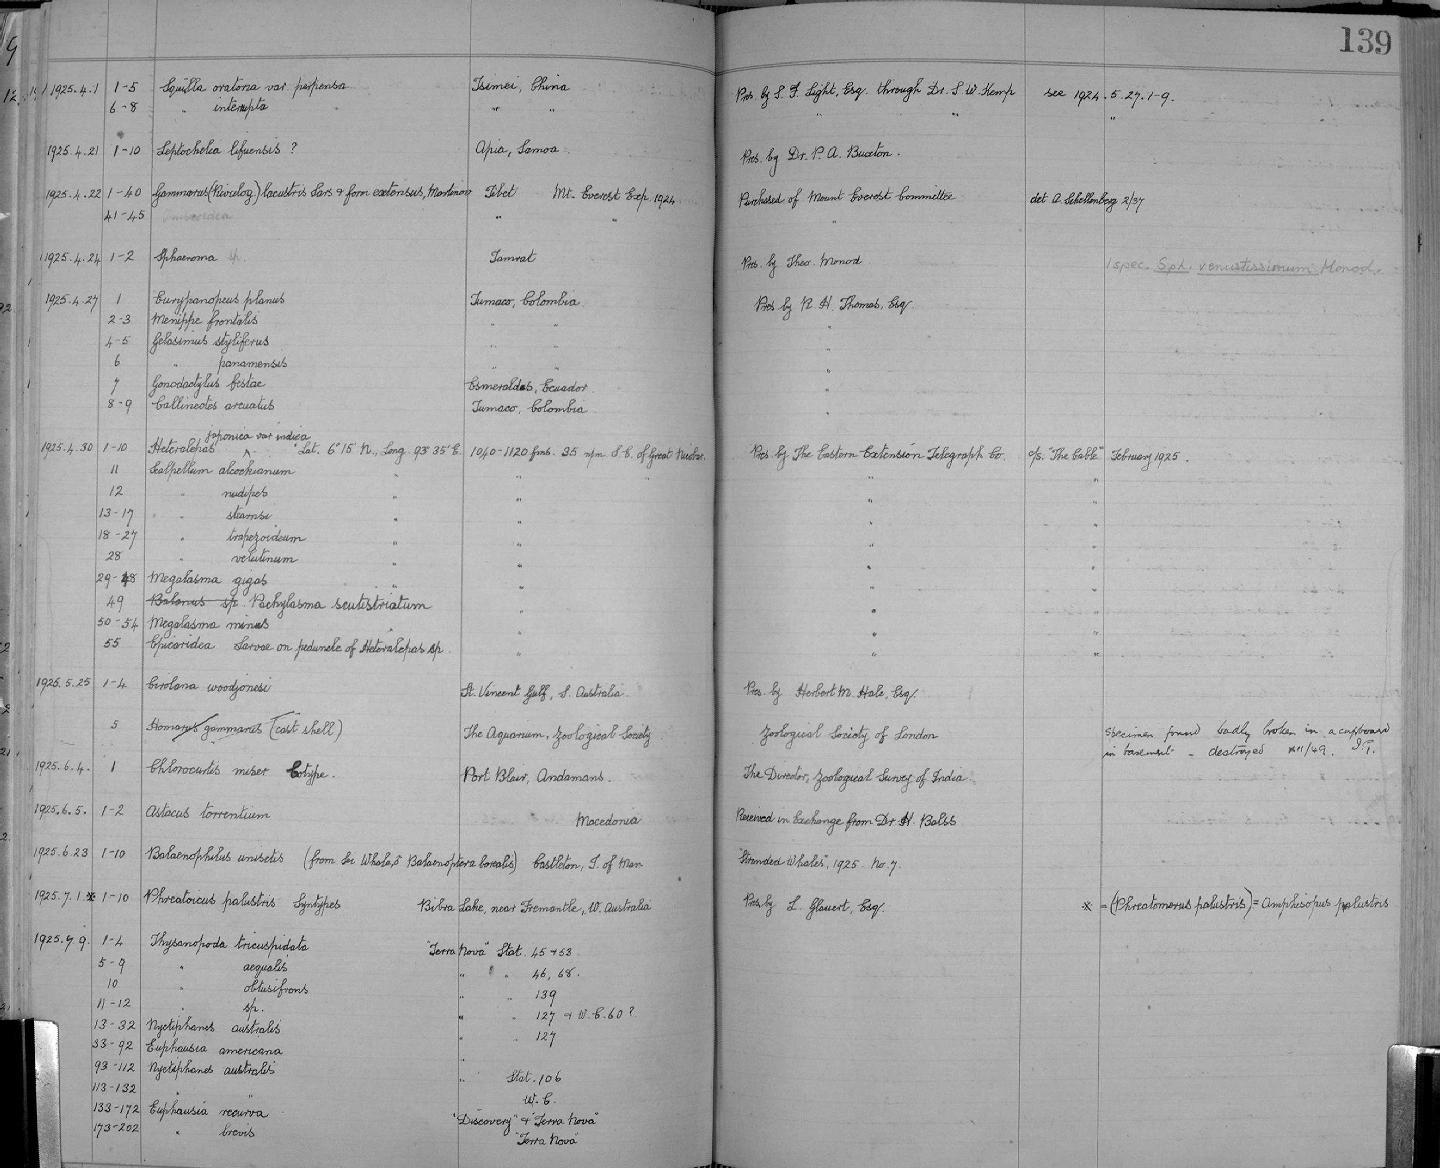 139
1925.4.1 1-5 Squilla oratoria var. perpensa Tsimei, China Pres. by S. F. Light, Esq. through Dr. S. W. Kemp see 1924.5.27.1-9.
6-8 " interrupta " " " " "
1925.4.21 1-10 Leptochelia lifuensis ? Apia, Samoa. Pres. by Dr. P. A. Buxton.
1925.4.22 1-40 Gammarus (Rivulog) lacustris Sars & form extensus, Martinov Tibet Mt. Everest Exp. 1924 Purchased of Mount Everest Committee det A. Schellenberg 2/37
41-45 Oniscoidea " " "
1925.4.24 1-2 Sphaeroma sp. Tamrat Pres. by Theo. Monod 1 spec. Sph. venustissimum Monod.
1925.4.27 1 Eurypanopeus planus Tumaco, Colombia Pres by R. H. Thomas, Esq.
2-3 Menippe frontalis " " "
4-5 Gelasimus styliferus " " "
6 " panamensis " " "
7 Gonodactylus festae Esmeraldas, Ecuador "
8-9 Callinectes arcuatus Tumaco, Colombia "
japonica var indica
1925.4.30 1-10 Heteralepas " Lat. 6° 15' N., Long. 93° 35' E. 1040-1120 fms. 35 n/m S.E. of Great Nicobar. Pres. by The Eastern Extension Telegraph Co. c/s. "The Cable" February 1925.
11 Scalpellum alcockianum " " " "
12 " nudipes " " " "
13-17 " stearnsi " " " "
18-27 " trapezoideum " " " "
28 " velutinum " " " "
29-48 Megalasma gigas " " " "
49 Balanus sp. Pachylasma scutistriatum " " "
50-54 Megalasma minus " " " "
55 Epicaridea Larvae on peduncle of Heteralepas sp. " " "
1925.5.25 1-4 Cirolana woodjonesi St. Vincent Gulf, S. Australia Pres. by Herbert M. Hale, Esq.
5 Homarus gammarus (cast shell) The Aquarium, Zoological Society Zoological Society of London specimen found badly broken in a cupboard
in basement - destroyed XII/49. I.G.
1925.6.4. 1 Chlorocurtis miser Cotype. Port Blair, Andamans. The Director, Zoological Survey of India.
1925.6.5. 1-2 Astacus torrentium Macedonia Received in Exchange from Dr. H. Balss
1925.6.23 1-10 Balaenophilus unisetis (from Sei Whale, ♂ Balaenoptera borealis) Castleton, I. of Man "Stranded Whales", 1925. No. 7
1925.7.1.* 1-10 Phreatoicus palustris Syntypes Bibra Lake, near Fremantle, W. Australia Pres. by L. Glauert, Esq. * = (Phreatomerus palustris) = Amphisopus palustris
1925.7.9. 1-4 Thysanopoda tricuspidata "Terra Nova" Stat. 45 + 53
5-9 " aequalis " " 46, 68.
10 " obtusifrons " " 139
11-12 " sp. " " 127 + W.C. 60?
13-32 Nyctiphanes australis " " 127
33-92 Euphausia americana "
93-112 Nyctiphanes australis " Stat. 106
113-132 " " W.C.
133-172 Euphausia recurva "Discovery" & "Terra Nova"
173-202 " brevis "Terra Nova"